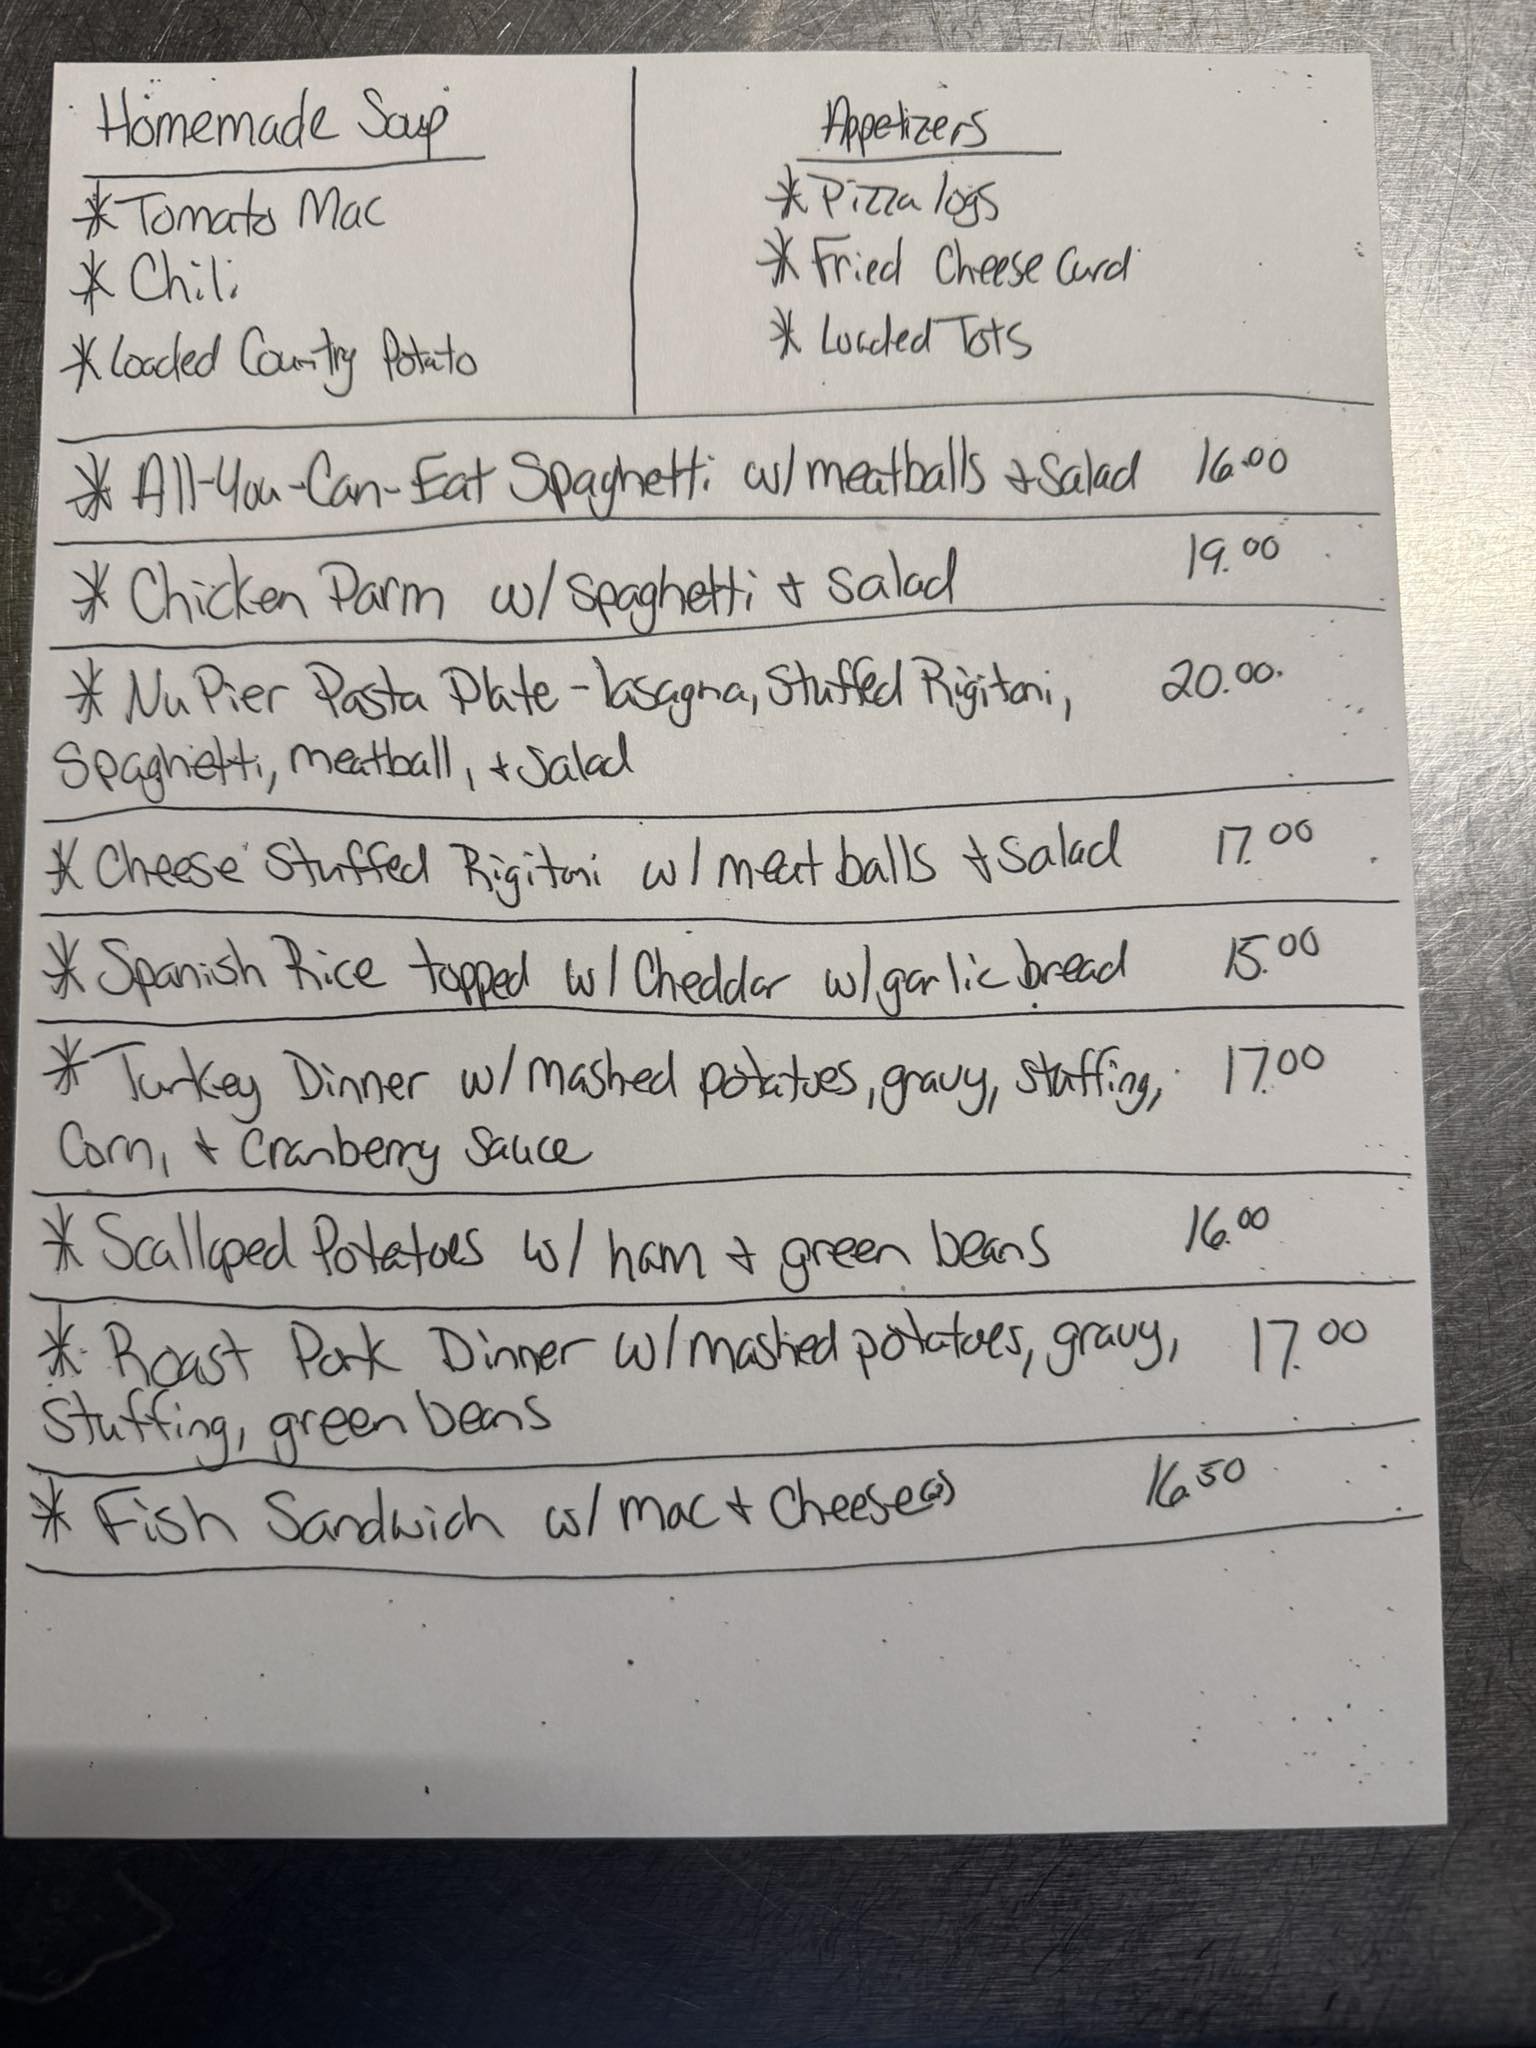 Homemade Soup
* Tomato Mac
* Chili
* Loaded Country Potato
Appetizers
* Pizza logs
* Fried Cheese Curd
* Loaded Tots
* All-You-Can-Eat Spaghetti w/ meatballs + Salad 16.00
* Chicken Parm w/ spaghetti + Salad 19.00
* Nu Pier Pasta Plate - lasagna, Stuffed Rigitoni, 20.00
Spaghetti, meatball, + Salad
* Cheese Stuffed Rigitoni w/ meatballs + Salad 17.00
* Spanish Rice topped w/ Cheddar w/ garlic bread 15.00
* Turkey Dinner w/ mashed potatoes, gravy, stuffing, 17.00
Corn, + Cranberry Sauce
* Scalloped Potatoes w/ ham + green beans 16.00
* Roast Pork Dinner w/ mashed potatoes, gravy, 17.00
Stuffing, green beans
* Fish Sandwich w/ mac + Cheese 16.50